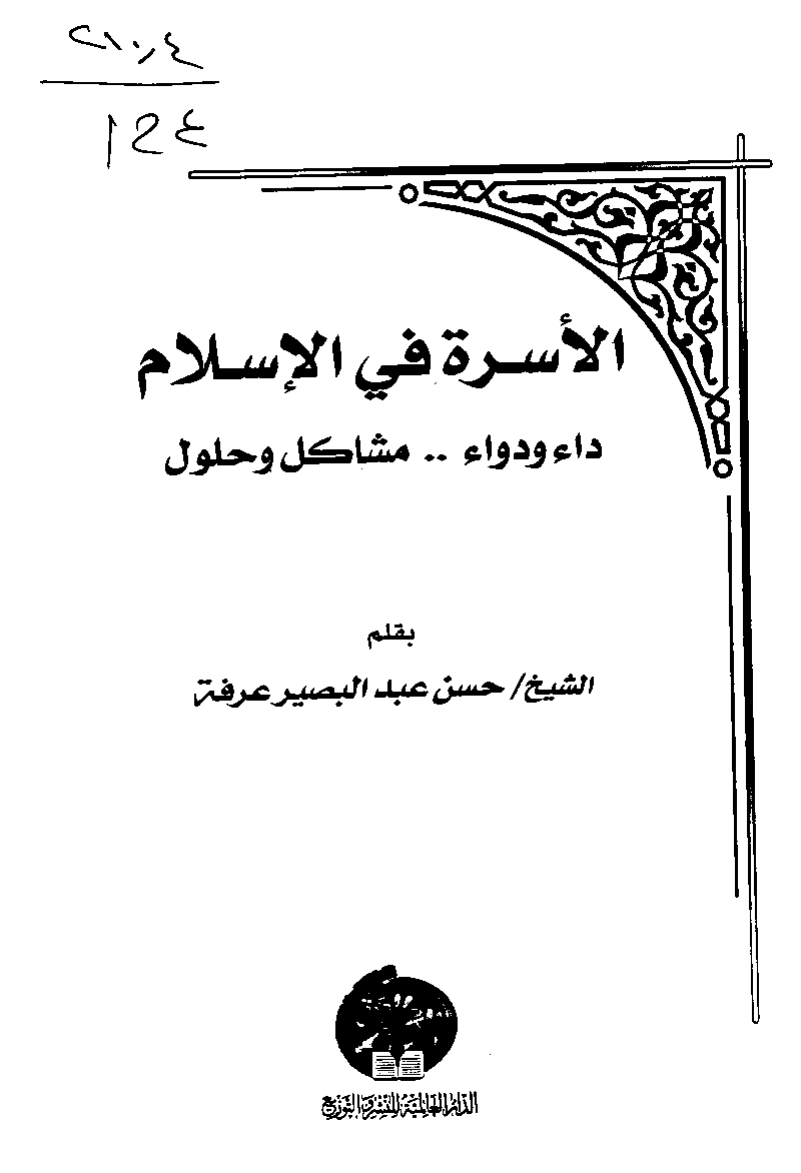 الأسرة في الإسلام
داء ودواء .. مشاكل وحلول
بقلم
الشيخ/ حسن عبد البصير عرفة
الدار العالمية للنشر والتوزيع